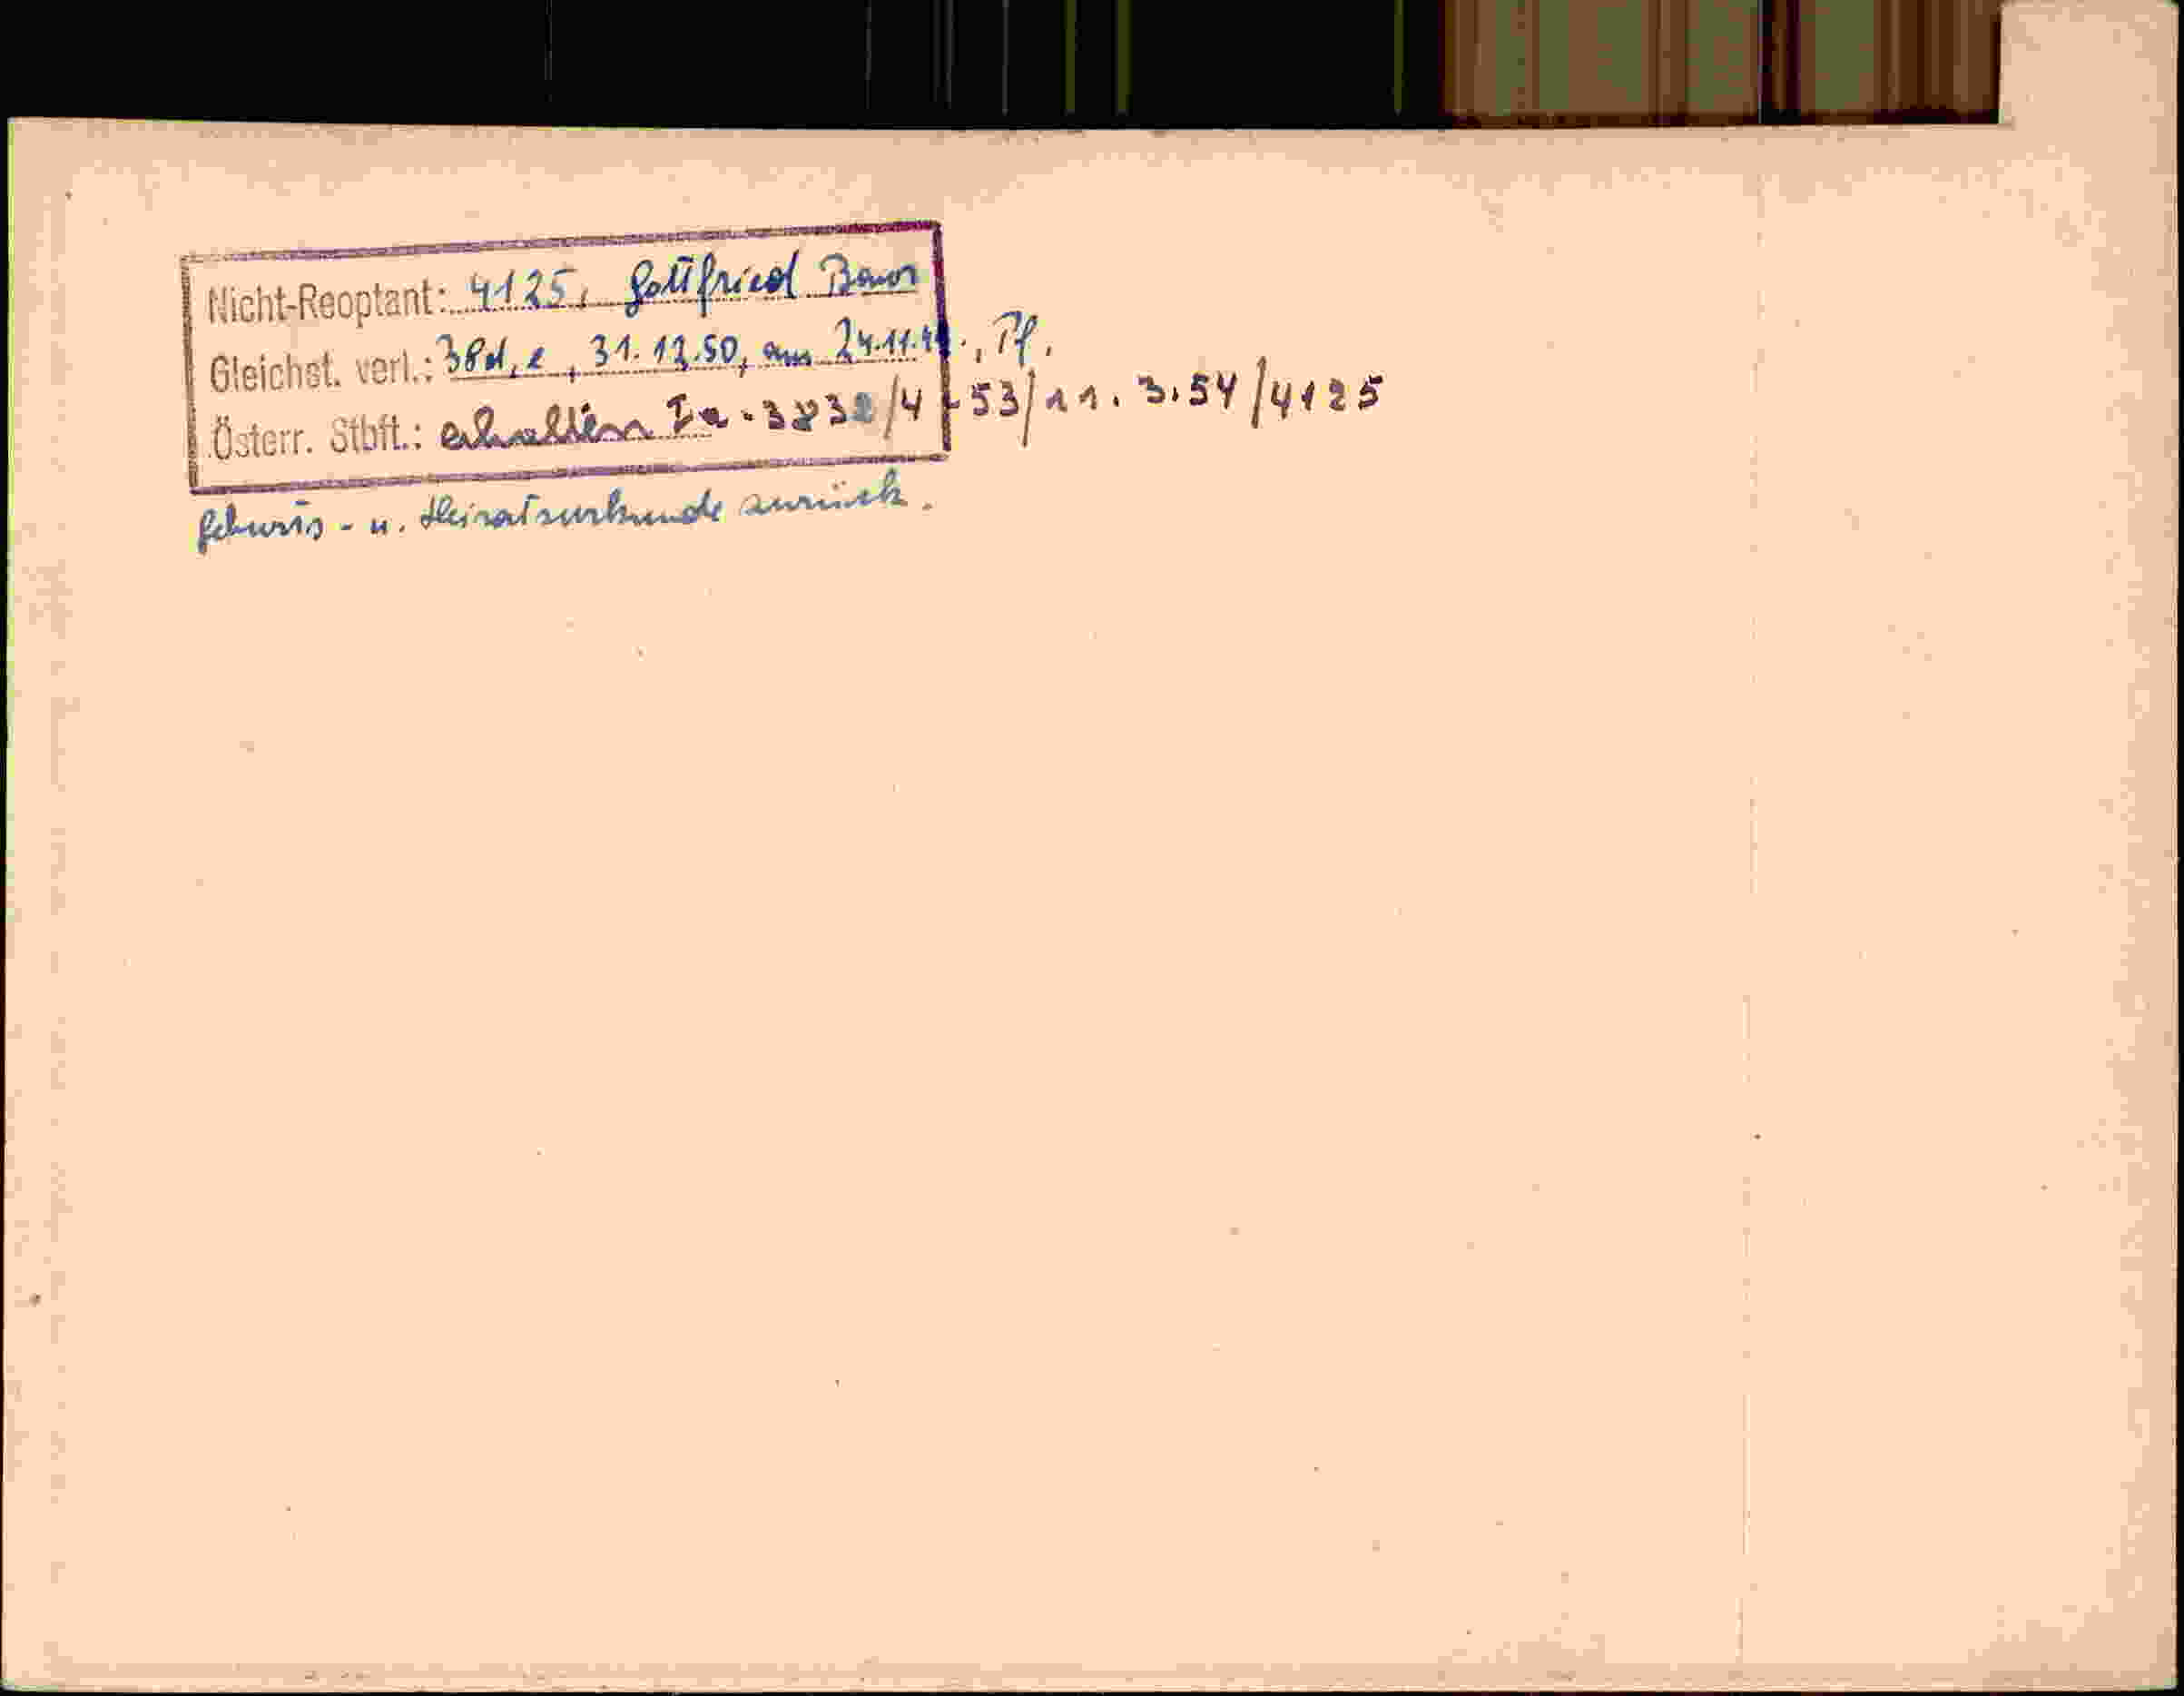 Nicht-Reoptant: 4125, Gottfried Baur
Gleichst. verl.: 38d, e, 31.12.50, am 24.11.49., Pf.
Österr. Stbft.: erhalten Ia-3832/4-53/11.3.54/4125
Geburts- u. Heiratsurkunde zurück.